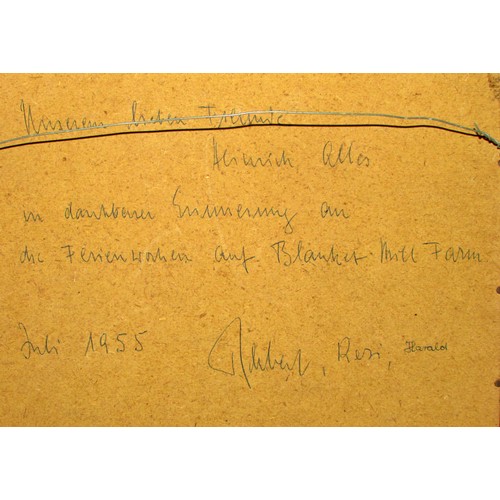 Unserem lieben Freunde
Heinrich Alles
in dankbarer Erinnerung an
die Ferienwochen auf Blanket Mill Farm
Juli 1955 Resi, Harald